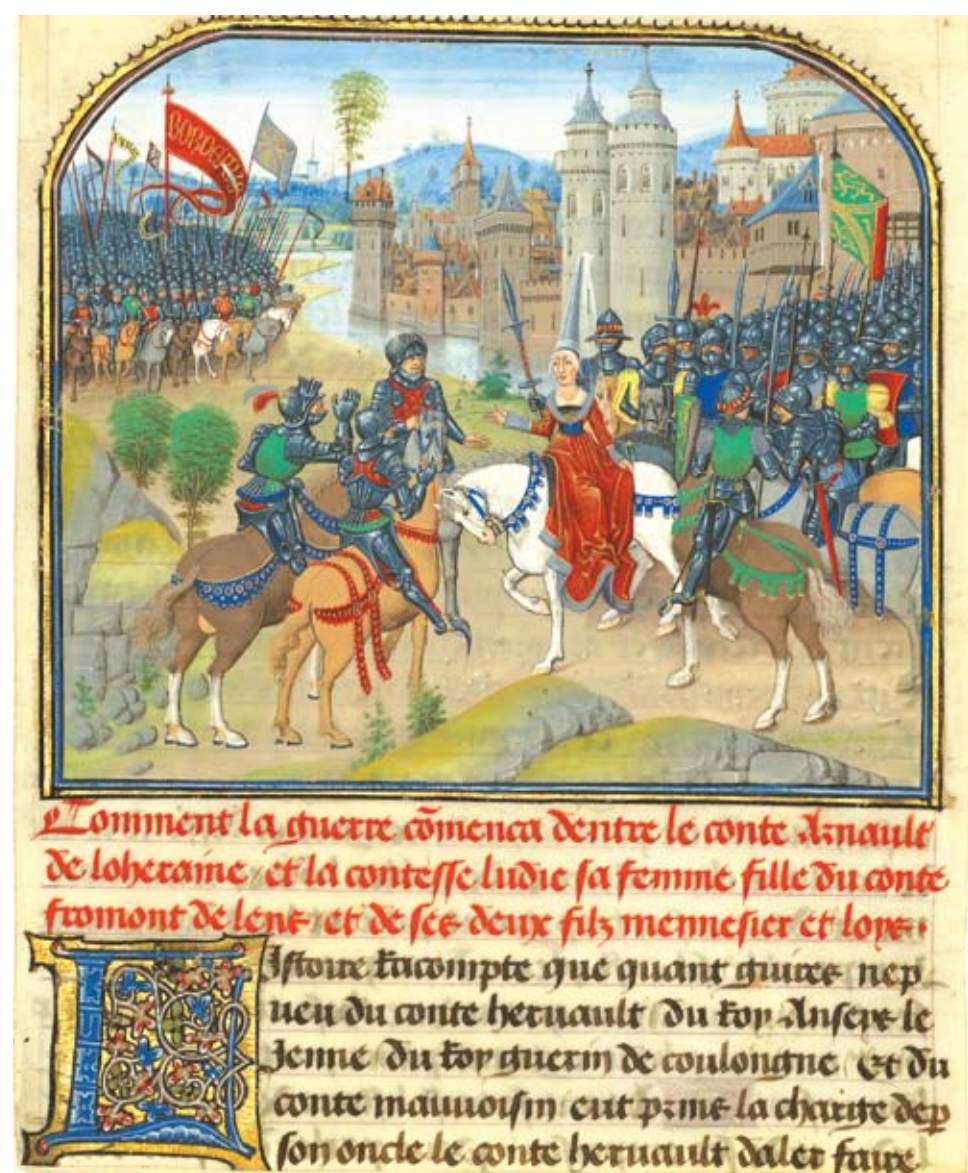 BORDEAUX
Comment la guerre cōmenca dentre le conte Arnault
de loheraine et la contesse ludie sa femme fille du conte
fromont de lens et de ses deux filz mennesier et loys.
Listoire Racompte que quant guires nep
ueu du conte heruault du Roy Anseys le
Jenne du Roy guerin de coulongne Et du
conte mauuoisin eut prins la charge dep
son oncle le conte heruault daler faire